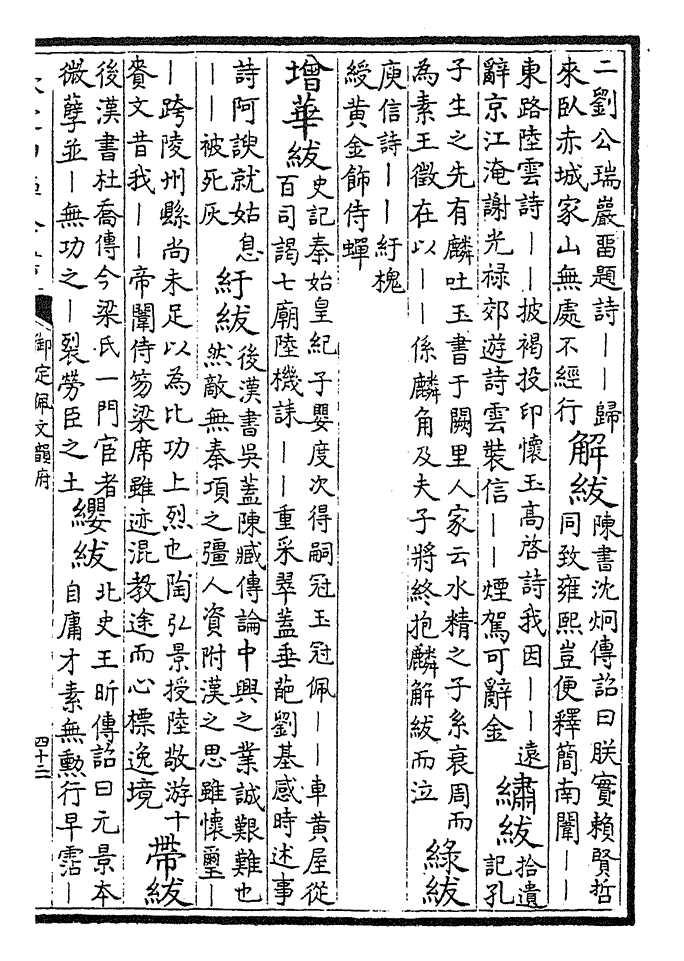 二劉公瑞巖畱題詩——歸
來臥赤城家山無處不經行
解紱
陳書沈炯傳詔曰朕實賴賢哲
同致雍熙豈便釋簡南闈——
東路陸雲詩——披褐投印懷玉高啓詩我因——遠
辭京江淹謝光祿郊遊詩雲裝信——煙駕可辭金
繡紱
拾遺
記孔
子生之先有麟吐玉書于闕里人家云水精之子系衰周而
為素王徵在以——係麟角及夫子將終抱麟解紱而泣
綠紱
庾信詩——紆槐
綬黃金飾侍蟬
增華紱
史記秦始皇紀子嬰度次得嗣冠玉冠佩——車黃屋從
百司謁七廟陸機誄——重采翠蓋垂葩劉基感時述事
詩阿諛就姑息
——被死灰
紆紱
後漢書吳蓋陳臧傳論中興之業誠艱難也
然敵無秦項之彊人資附漢之思雖懷璽—
—跨陵州縣尚未足以為比功上烈也陶弘景授陸敬游十
賚文昔我——帝闈侍笏梁席雖迹混教途而心標逸境
帶紱
後漢書杜喬傳今梁氏一門宦者
微孽並—無功之—裂勞臣之土
纓紱
北史王昕傳詔曰元景本
自庸才素無勳行早霑—
御定佩文韻府
四十二